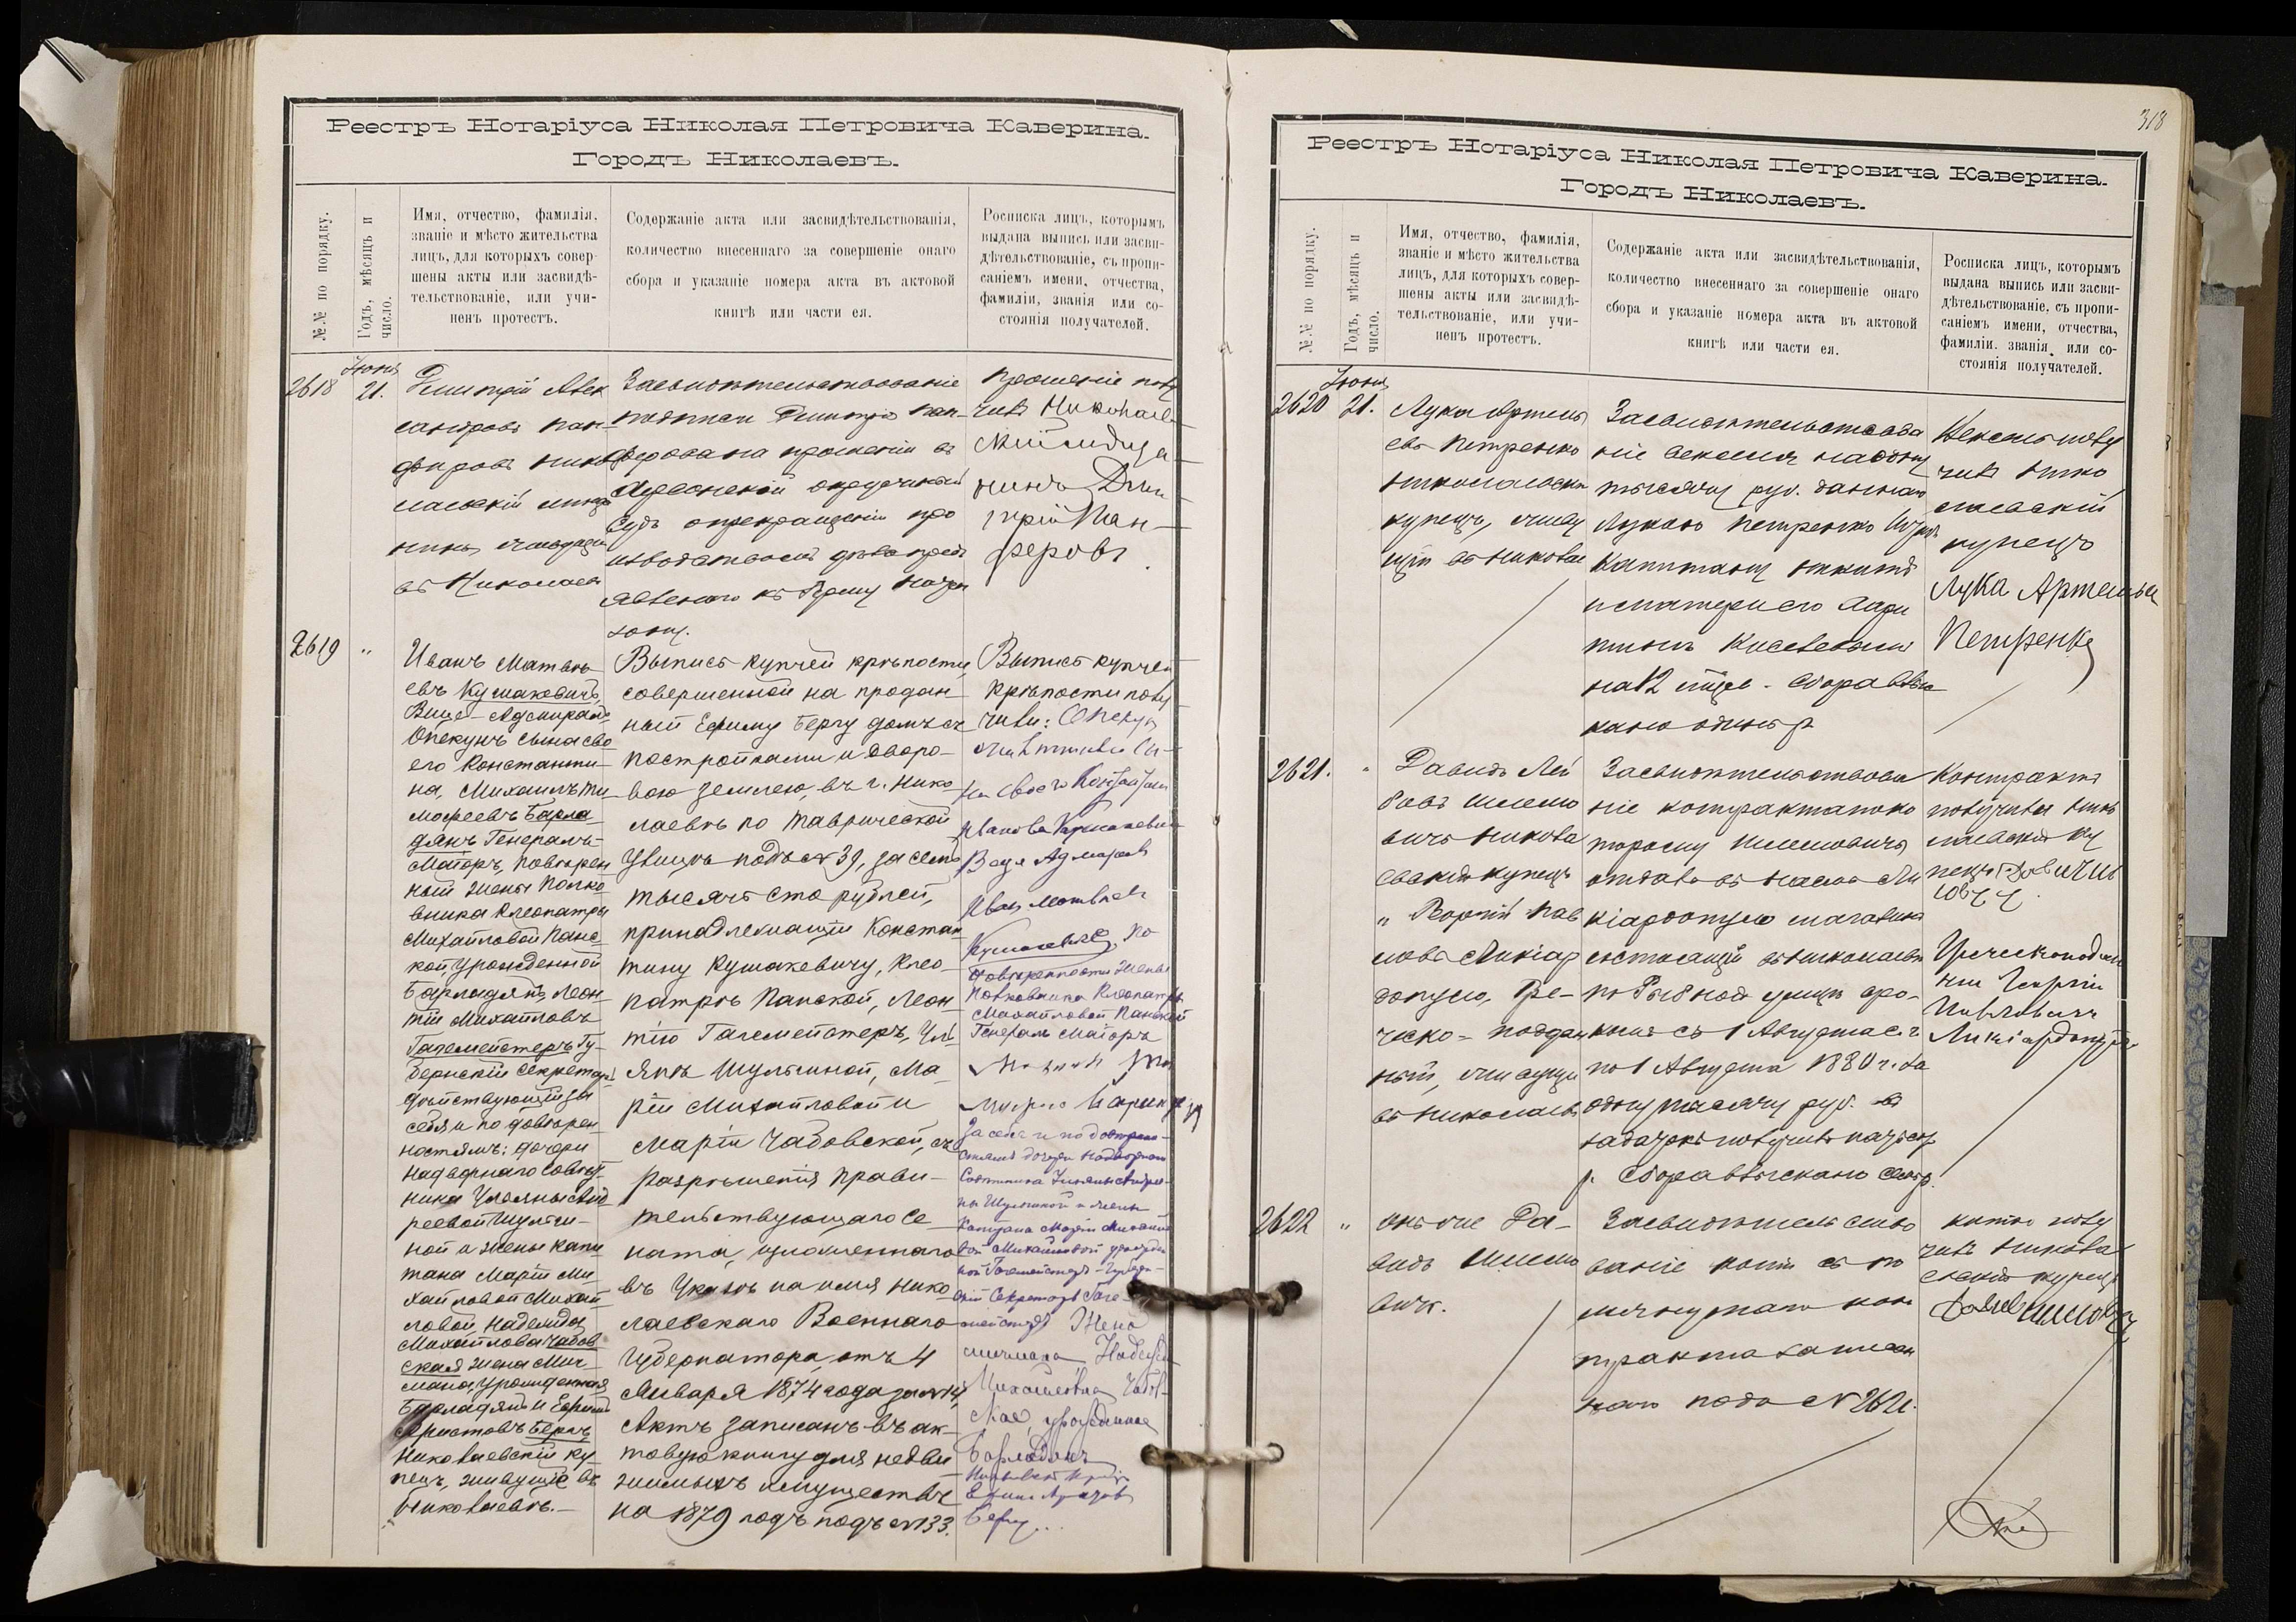 Реестръ Нотаріуса Николая Петровича Каверина.
Городъ Николаевъ.
№.№ по порядку.
Годъ, мѣсяцъ и
число.
Имя, отчество, фамилія,
званіе и мѣсто жительства
лицъ, для которыхъ совер-
шены акты или засвидѣ-
тельствованіе, или учи-
ненъ протестъ.
Содержаніе акта или засвидѣтельствованія,
количество внесеннаго за совершеніе онаго
сбора и указаніе номера акта въ актовой
книгѣ или части ея.
Росписка лицъ, которымъ
выдана выпись или засви-
дѣтельствованіе, съ пропи-
саніемъ имени, отчества,
фамиліи, званія или со-
стоянія получателей.
2618
Іюня
21.
Дмитрій Алек
сандровъ Пан-
феровъ Нико
лаевскій мѣща
нинъ
въ Николаевѣ
Засвидѣтельствованіе
подписи Дмитрія Пан-
ферова на прошеніи въ
Херсонскій окружный
Судъ о прекращеніи про
изводствомъ дѣла
Прошеніе полу
чилъ Николаев
скій мѣща
нинъ Дми
трій Пан-
феровъ.
2619
"
Иванъ Матвѣ-
евъ Кумакевичъ,
Вице-Адмиралъ
Опекунъ сына сво
его Константи-
на, Михаилъ Ти
мофеевъ Барла
дянъ Генералъ-
Маіоръ, повѣрен
ный жены Полко
вника Клеопатры
Михайловой Панс-
кой, урожденной
Барладянъ, Леон-
тій Михайловъ
Гагемейстеръ Гу-
бернскій Секретарь
дѣйствующій за
себя и по довѣрен-
ностямъ: дочери
Надворнаго Совѣт-
ника Ульяны Анд
реевой Шульги-
ной и жены Капи
тана Маріи Ми-
хайловой Михай
ловой, Надежда
Михайлова Чабов
ская жена Мич-
мана, урожденная
Барладянъ и Ефимъ
Аристовъ Бергъ
Николаевскій ку-
пецъ, живущіе въ
Николаевѣ.-
Выпись купчей крѣпости,
совершенной на продан-
ный Ефиму Бергу домъ съ
постройками и дворо-
вою землею, въ г. Нико-
лаевѣ по Таврической
улицѣ подъ № 39, за семь
тысячъ сто рублей,
принадлежащій Констан
тину Кушакевичу, Клео-
патрѣ Панской, Леон
тію Гагемейстеръ, Уль
янѣ Шульгиной, Ма-
ріи Михайловой и
Маріи Чабовской, съ
разрѣшенія Прави-
тельствующаго Се
ната, изложеннаго
въ Указѣ на имя Нико
лаевскаго Военнаго
Губернатора, отъ 4
Января 1874 года за № 14,
Актъ записанъ въ ак-
товую книгу для недви
жимыхъ имуществъ
на 1879 годъ подъ № 133.
Выпись купчей
крѣпости полу
чили: Опекунъ
сы-
на своего Константина
Вице Адмиралъ
Иванъ Матвѣевъ
Кушакевичъ, По
довѣренности жены
Полковника Клеопатры
Михайловой Панской
Генералъ Маіоръ
За себя и по довѣрен-
ностямъ дочери Надворнаго
Совѣтника Ульяны Андрее-
вны Шульгиной и жены
Капитана Маріи Михайло
вой Михайловой
Губерн-
скій Секретарь Гаге-
мейстеръ Жена
мичмана Надежда
Михайловна Чабов-
ская, урожденная
Барладянъ
Бергъ
318
Реестръ Нотаріуса Николая Петровича Каверина.
Городъ Николаевъ.
№.№ по порядку.
Годъ, мѣсяцъ и
число.
Имя, отчество, фамилія,
званіе и мѣсто жительства
лицъ, для которыхъ совер-
шены акты или засвидѣ-
тельствованіе, или учи-
ненъ протестъ.
Содержаніе акта или засвидѣтельствованія,
количество внесеннаго за совершеніе онаго
сбора и указаніе номера акта въ актовой
книгѣ или части ея.
Росписка лицъ, которымъ
выдана выпись или засви-
дѣтельствованіе, съ пропи-
саніемъ имени, отчества,
фамиліи. званія или со-
стоянія получателей.
2620
Іюня
21.
Лука Артемь
евъ Петренко
Николаевскій
купецъ, живу
щій въ Николаевѣ
Засвидѣтельствова
ніе векселя на одну
тысячу руб. даннаго
Лукою Петренко
Капитану Никитѣ
и матери его
на 12 мѣсяц. Сбора взы
кано одинъ р
Вексель полу
чилъ Нико
лаевскій
купецъ
Лука Артемьев
Петренко
2621.
"
Давидъ Лей
бовъ Шлемо
вичъ Никола
евскій купецъ
" Георгій Пав
ловъ Ликіар
допуло, Гре-
ческо-поддан
ный, живущіе
въ Николаевѣ
Засвидѣтельствова
ніе контракта по ко
торому Шлемовичъ
отдалъ въ наемъ Ли
кіардопуло магазинъ
состоящій въ Николаевѣ
по Рыбной улицѣ сро-
комъ съ 1 Августа с. г
по 1 Августа 1880 г. за
одну тысячу руб. въ
задатокъ получилъ
р. Сбора взыскано
Контрактъ
получилъ Нико
лаевскій ку
пецъ
Греческоподдан
ный Георгій
Павловичъ
Ликіардопуло
2622
"
Онъ же Да-
видъ Шлемо
вичъ.
Засвидѣтельство
ваніе копіи съ по
мянутаго кон
тракта записан
наго подъ № 2621.
Копію полу
чилъ Никола
евскій купецъ